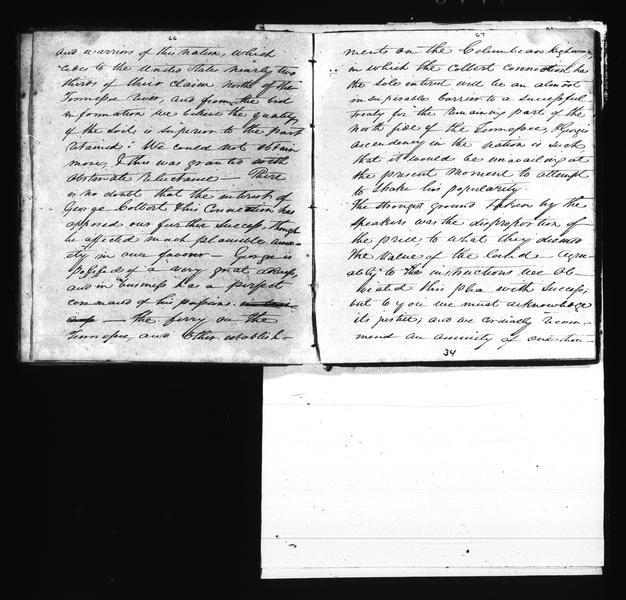 66
and warriors of this nation, which
cedes to the United States nearly two
thirds of their claim north of the
Tennessee River, and from the best
information we believe the quality
of the soil is superior to the part
retained: We could not obtain
more, & this was granted with
obstinate reluctance — There
is no doubt that the interest of
George Colbert & his Connection has
opposed our further success, though
he affected much plausible anxi-
ety in our favour — George is
possessed of a very great address
and in business has a perfect
command of his passions.
— the ferry on the
Tennessee, and other establish-
67
ments on the Columbean highway,
in which the Colbert connection has
the sole interest will be an almost
insuperable barrier to a successful
treaty for the remaining part of the
north side of the Tennessee, George's
ascendency in the nation is such,
that it would be unavailing at
the present moment to attempt
to shake his popularity.
The strongest ground taken by the
speakers was the disproportion of
the price to what they deemed
the value of the land. Agree-
ably to the instructions we ob-
viated this plea with success;
but to you we must acknowledge
its justice, and we cordially recom-
mend an annuity of one thou-
34